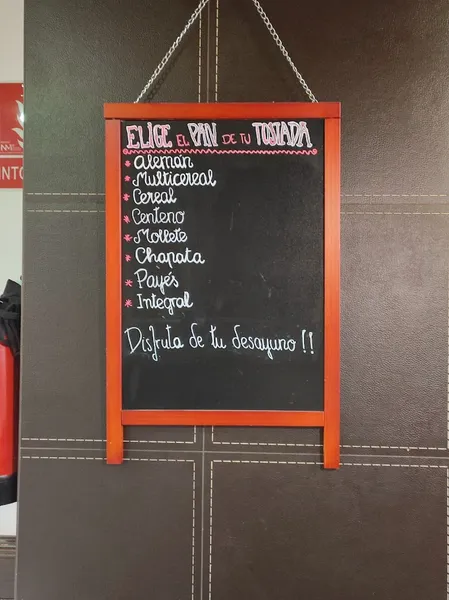 ELIGE EL PAN DE TU TOSTADA
* Alemán
* Multicereal
* Cereal
* Centeno
* Mollete
* Chapata
* Payés
* Integral
Disfruta de tu desayuno !!